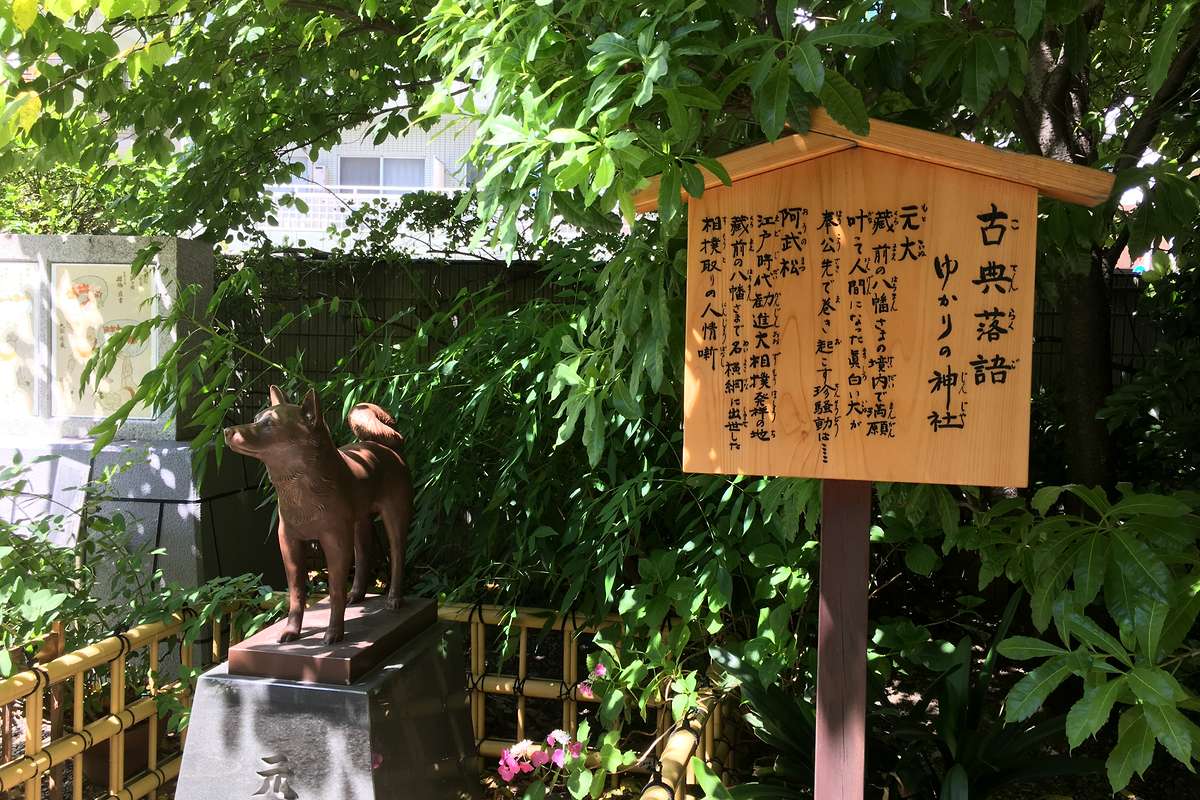 古典落語
ゆかりの神社
元犬
蔵前の八幡さまの境内で満願
叶って人間になった真白い犬が
奉公先で巻き起こす珍騒動は……
阿武松
江戸時代勧進大相撲発祥の地
蔵前の八幡さまで名横綱に出世した
相撲取りの人情噺
元